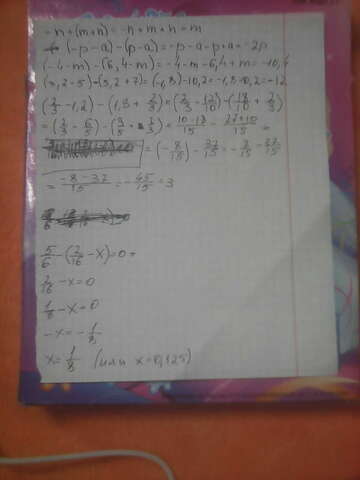 -n+(m+n)=-n+m+n=m
(-p-a)-(p-a)=-p-a-p+a=-2p
(-4-m)-(6,4-m)=-4-m-6,4+m=-10,4
=(-1,8)-10,2=-1,8-10,2=-12
(2/3-1,2)-(1,8+2/3)=(2/3-12/10)-(18/10+2/3)
=(2/3-6/5)-(9/5+2/3)=10-18/15-27+10/15=
=(-8/15)-37/15=-8/15-37/15
=-8-37/15=-45/15=3
5/6-(2/16-x)=0=
2/16-x=0
1/8-x=0
-x=-1/8
x=1/8 (или x=0,125)